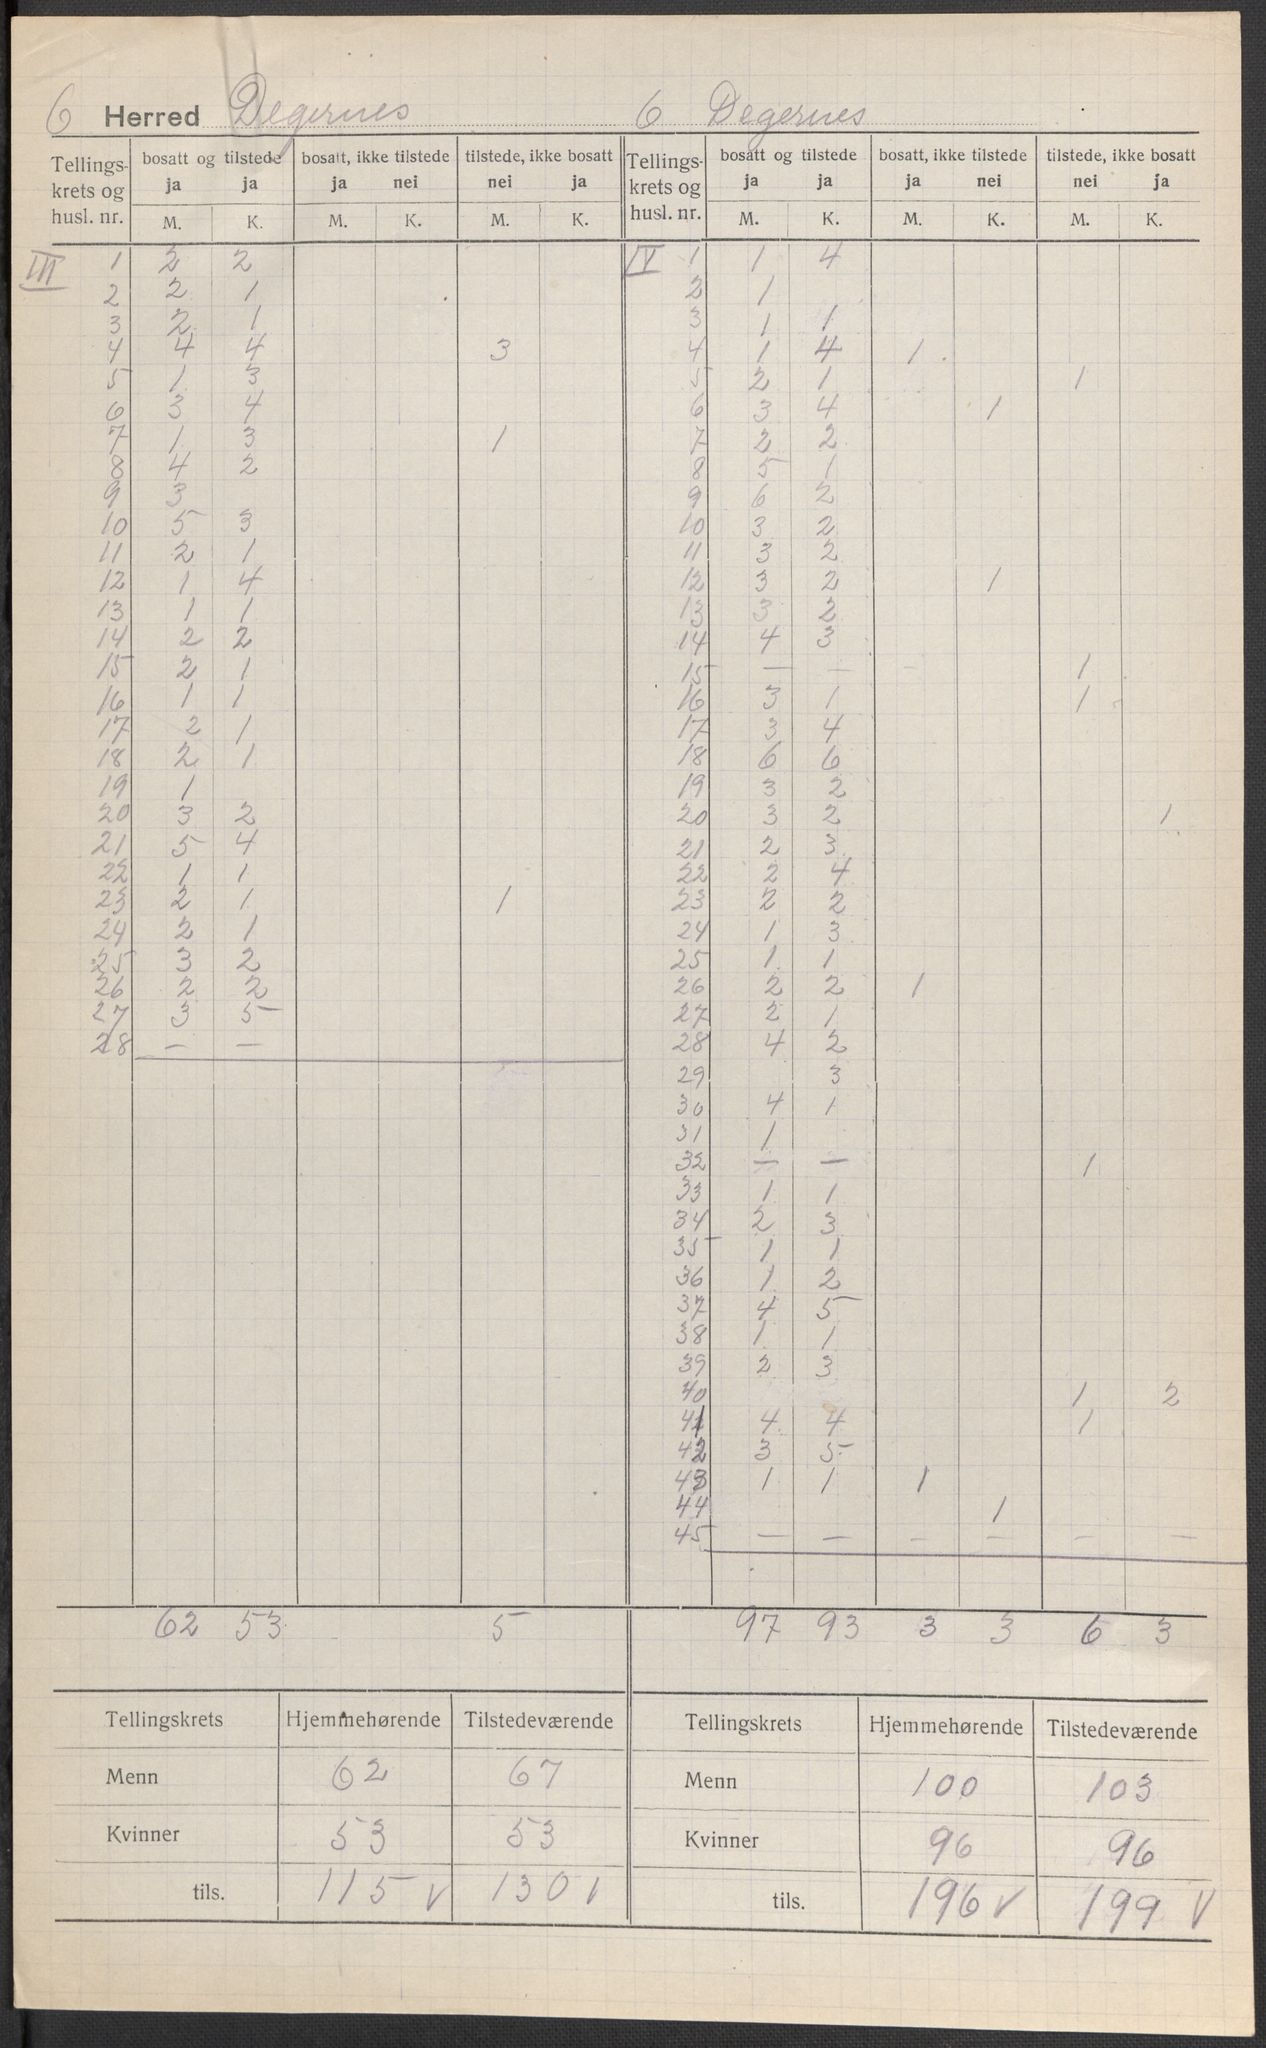 6 Herred Degernes 6 Degernes
Tellings-krets og husl. nr. bosatt og tilstede bosatt, ikke tilstede tilstede, ikke bosatt Tellings-krets og husl. nr. bosatt og tilstede bosatt, ikke tilstede tilstede, ikke bosatt
ja ja ja nei nei ja ja ja ja nei nei ja
M. K. M. K. M. K. M. K. M. K. M. K.
III 1 2 2 IV 1 1 4
2 2 1 2 1
3 2 1 3 1 1
4 4 4 3 4 1 4 1
5 1 3 5 2 1 1
6 3 4 6 3 4 1
7 1 3 1 7 2 2
8 4 2 8 5 1
9 3 9 6 2
10 5 3 10 3 2
11 2 1 11 3 2
12 1 4 12 3 2 1
13 1 1 13 3 2
14 2 2 14 4 3
15 2 1 15 — — — 1
16 1 1 16 3 1 1
17 2 1 17 3 4
18 2 1 18 6 6
19 1 19 3 2
20 3 2 20 3 2 1
21 5 4 21 2 3
22 1 1 22 2 4
23 2 1 1 23 2 2
24 2 1 24 1 3
25 3 2 25 1 1
26 2 2 26 2 2 1
27 3 5 27 2 1
28 — — 28 4 2
29 3
30 4 1
31 1
32 — — 1
33 1 1
34 2 3
35 1 1
36 1 2
37 4 5
38 1 1
39 2 3
40 1 2
41 4 4 1
42 3 5
43 1 1 1
44 1
45 — — — — — —
62 53 5 97 93 3 3 6 3
Tellingskrets Hjemmehørende Tilstedeværende Tellingskrets Hjemmehørende Tilstedeværende
Menn 62 67 Menn 100 103
Kvinner 53 53 Kvinner 96 96
tils. 115 v 130 v tils. 196 v 199 v